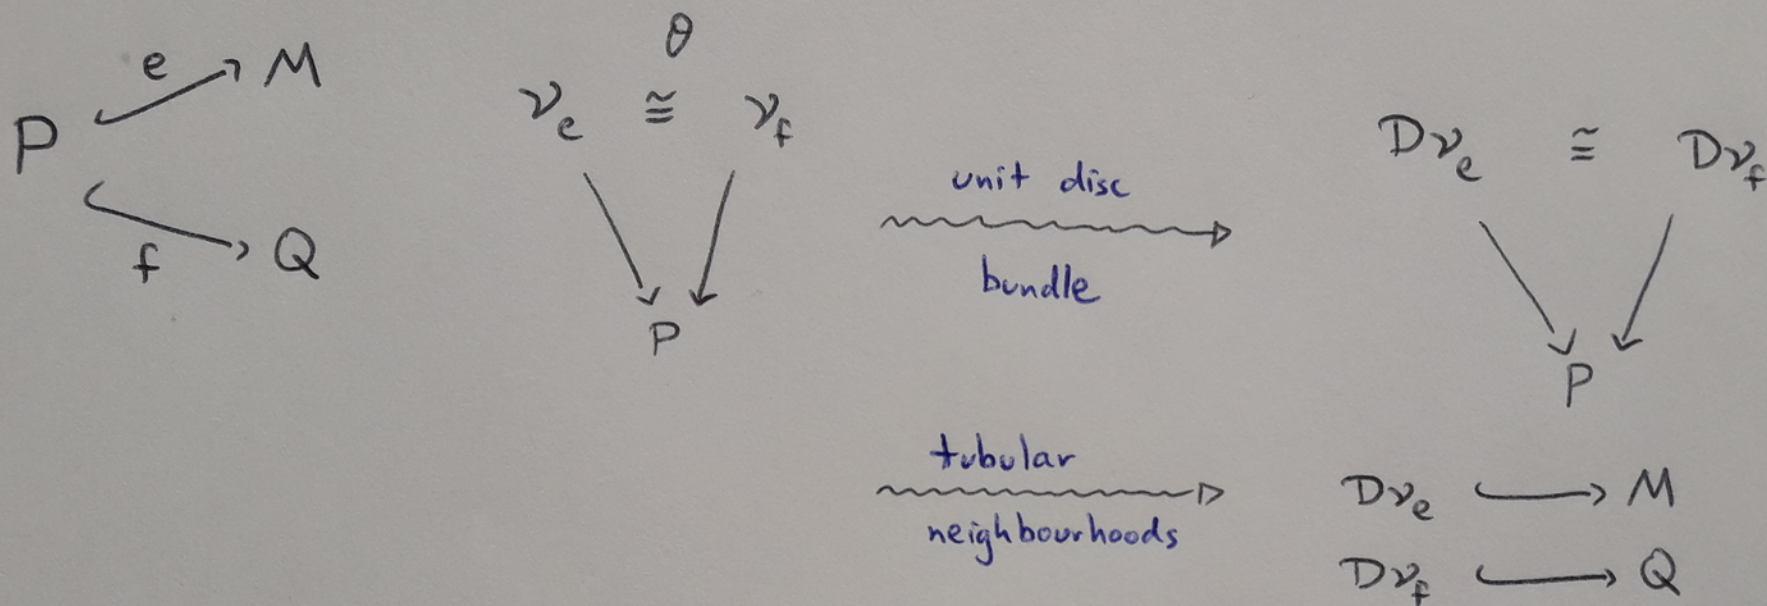 θ
e M
P ν_e ≅ ν_f
f Q
P
unit disc
bundle
Dν_e ≅ Dν_f
P
tubular
neighbourhoods
Dν_e ↪ M
Dν_f ↪ Q